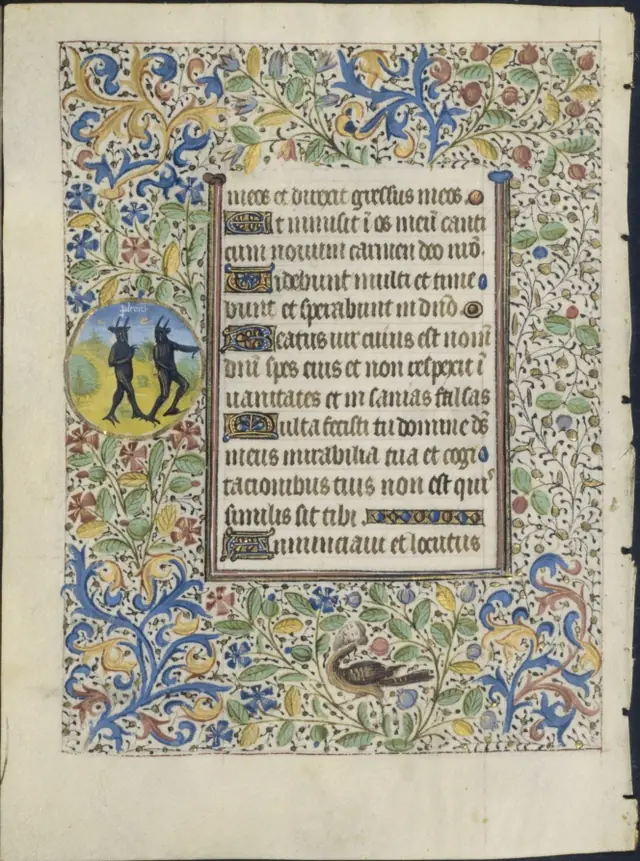 meos et direxit gressus meos
Et inmisit ī os meū canti
cum novum carmen deo nr̄o.
Videbunt multi et time
bunt et sperabunt in dn̄o.
Beatus vir cuius est nomē
dn̄i spes eius et non respexit ī
vanitates et in sanias falsas
Multa fecisti tu domine ds̄
meus mirabilia tua et cogi
tacionibus tuis non est qui
similis sit tibi.
Annunciavi et locutus